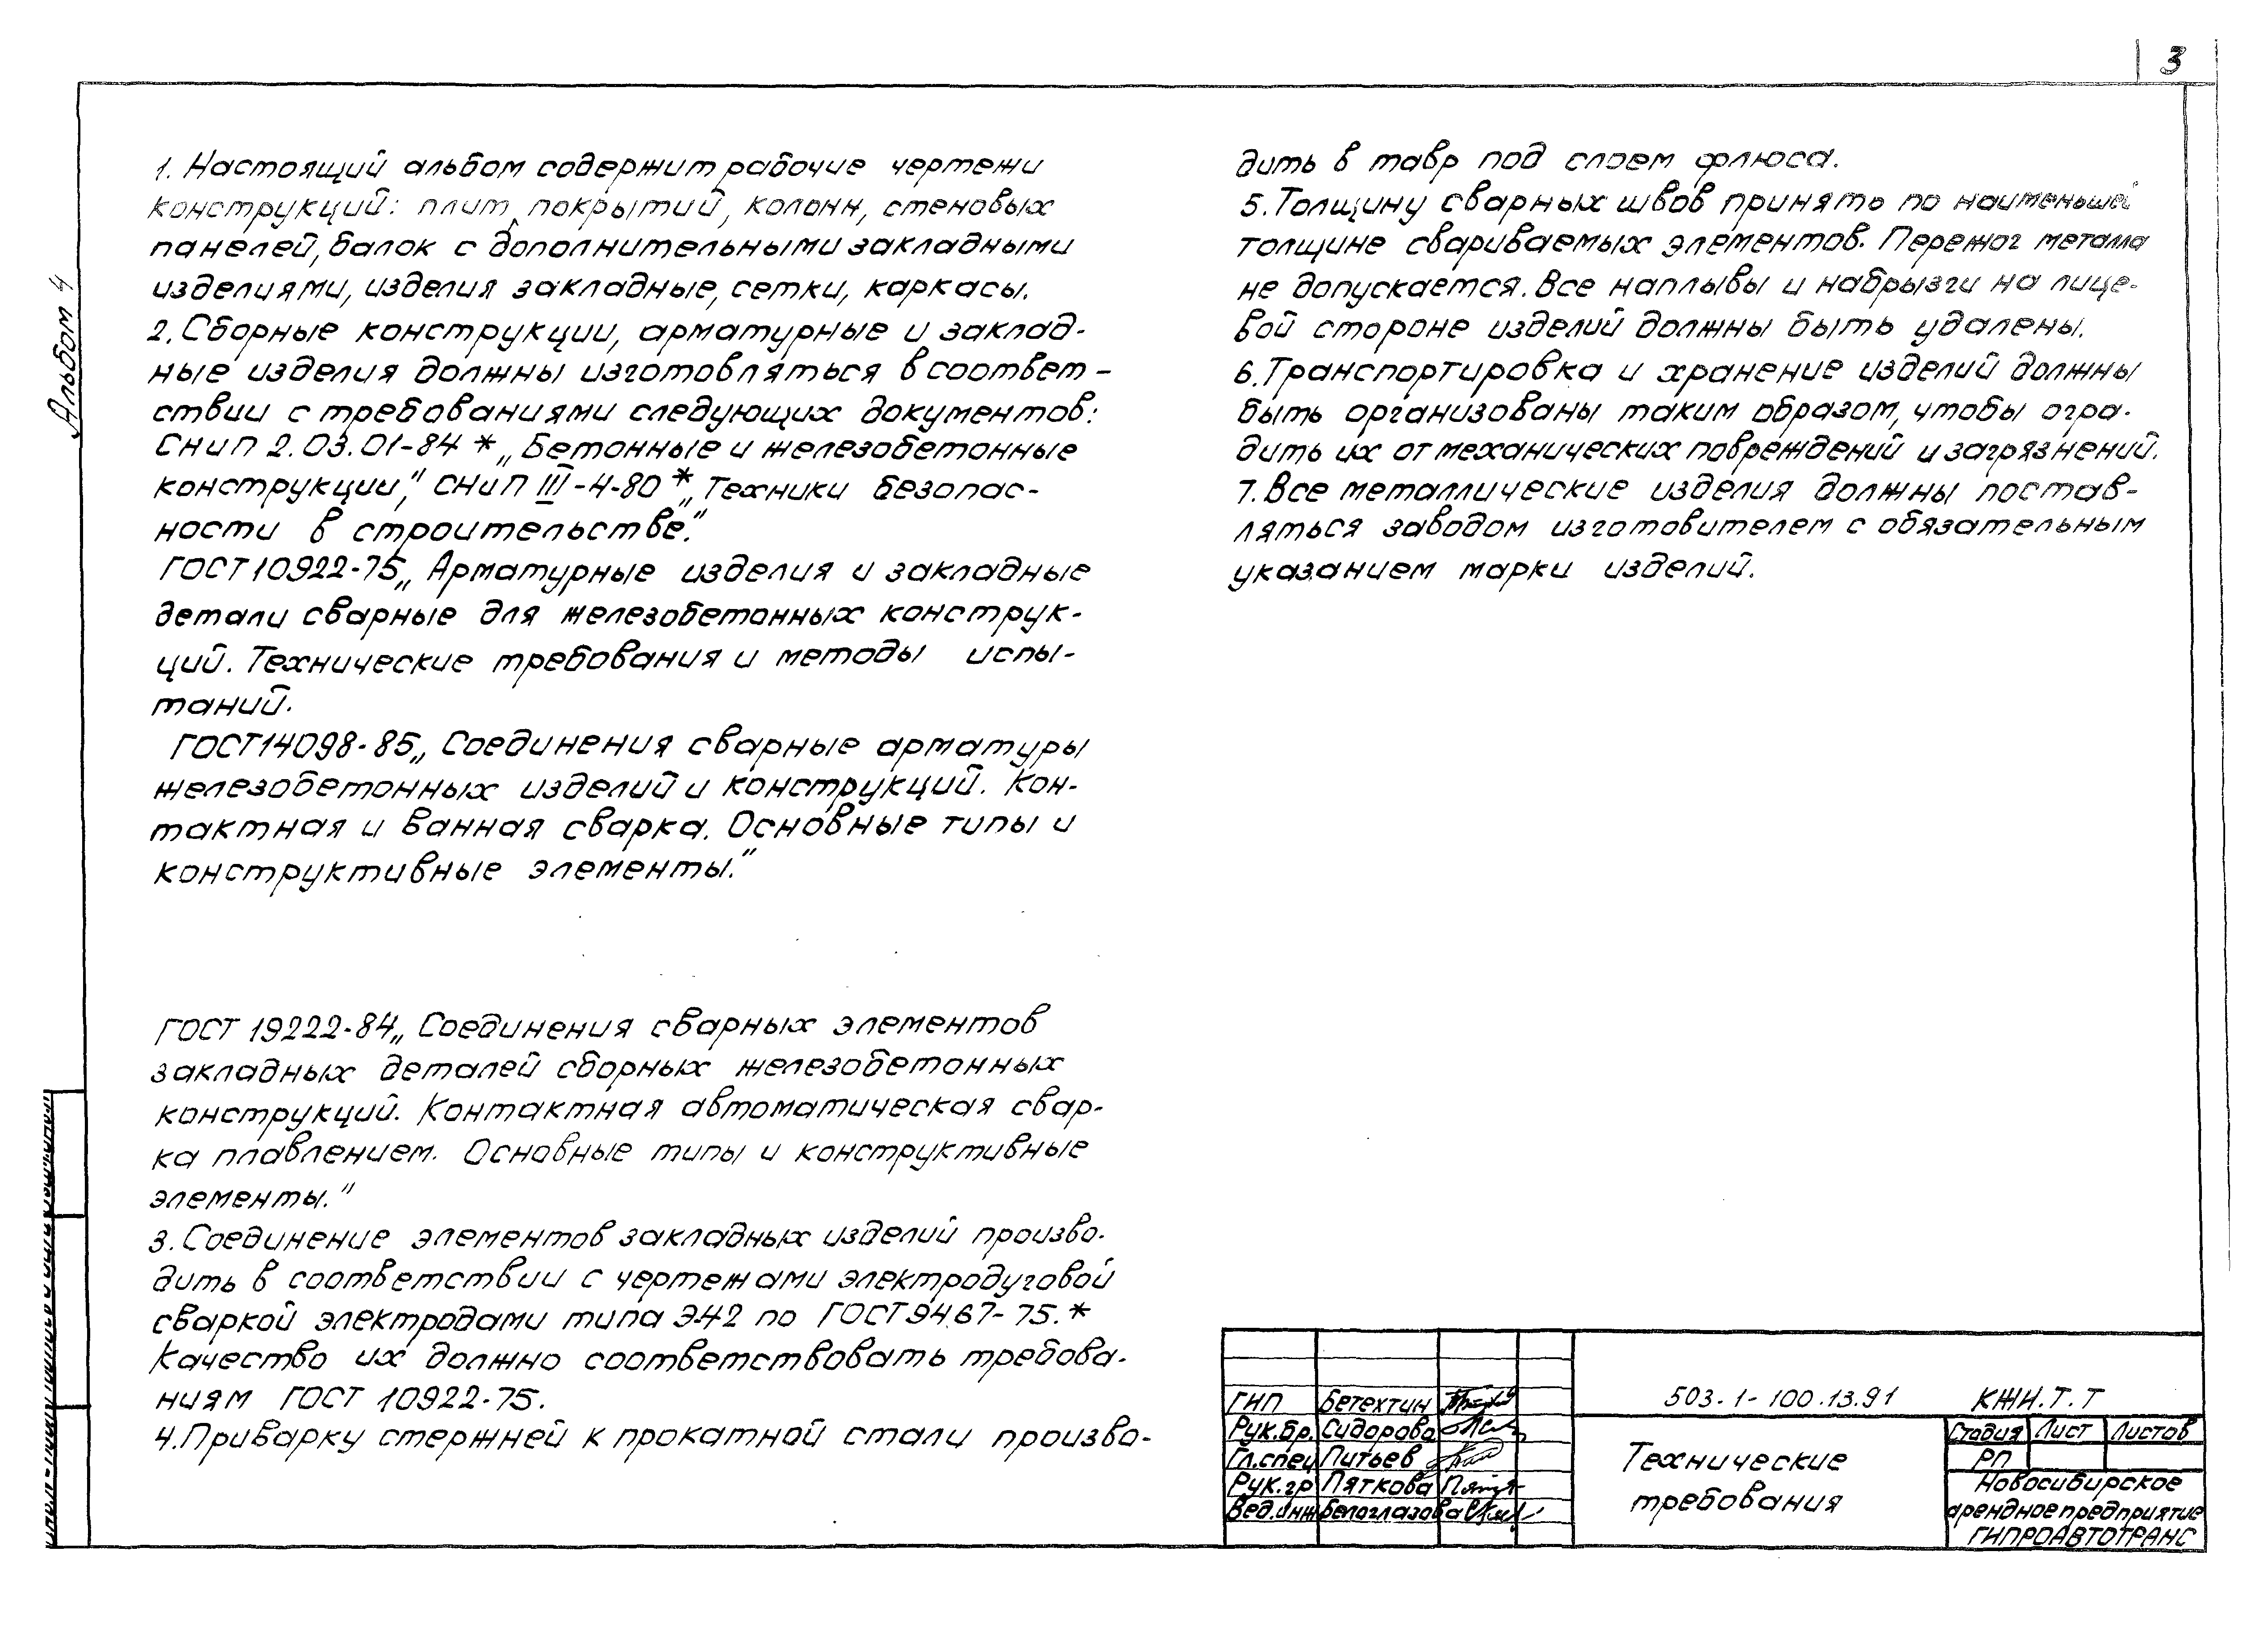 3
Альбом 4
1. Настоящий альбом содержит рабочие чертежи
конструкций: плит покрытий, колонн, стеновых
панелей, балок с дополнительными закладными
изделиями, изделия закладные, сетки, каркасы.
2. Сборные конструкции, арматурные и заклад-
ные изделия должны изготовляться в соответ-
ствии с требованиями следующих документов:
СНиП 2.03.01-84* „Бетонные и железобетонные
конструкции," СНиП III-4-80* „Техники безопас-
ности в строительстве."
ГОСТ 10922-75 „Арматурные изделия и закладные
детали сварные для железобетонных конструк-
ций. Технические требования и методы испы-
таний.
ГОСТ 14098-85 „Соединения сварные арматуры
железобетонных изделий и конструкций. Кон-
тактная и ванная сварка. Основные типы и
конструктивные элементы."
ГОСТ 19222-84 „Соединения сварных элементов
закладных деталей сборных железобетонных
конструкций. Контактная автоматическая свар-
ка плавлением. Основные типы и конструктивные
элементы."
3. Соединение элементов закладных изделий произво-
дить в соответствии с чертежами электродуговой
сваркой электродами типа Э42 по ГОСТ 9467-75.*
Качество их должно соответствовать требова-
ниям ГОСТ 10922-75.
4. Приварку стержней к прокатной стали произво-
дить в тавр под слоем флюса.
5. Толщину сварных швов принять по наименьшей
толщине свариваемых элементов. Пережог металла
не допускается. Все наплывы и набрызги на лице-
вой стороне изделий должны быть удалены.
6. Транспортировка и хранение изделий должны
быть организованы таким образом, чтобы огра-
дить их от механических повреждений и загрязнений.
7. Все металлические изделия должны постав-
ляться заводом изготовителем с обязательным
указанием марки изделий.
ГИП Бетехтин
Рук.бр. Сидорова
Гл.спец Питьев
Рук.гр Пяткова
Вед.инж Белоглазова
503.1-100.13.91 КЖИ.Т.Т
Технические
требования
Стадия Лист Листов
РП
Новосибирское
арендное предприятие
ГИПРОАВТОТРАНС